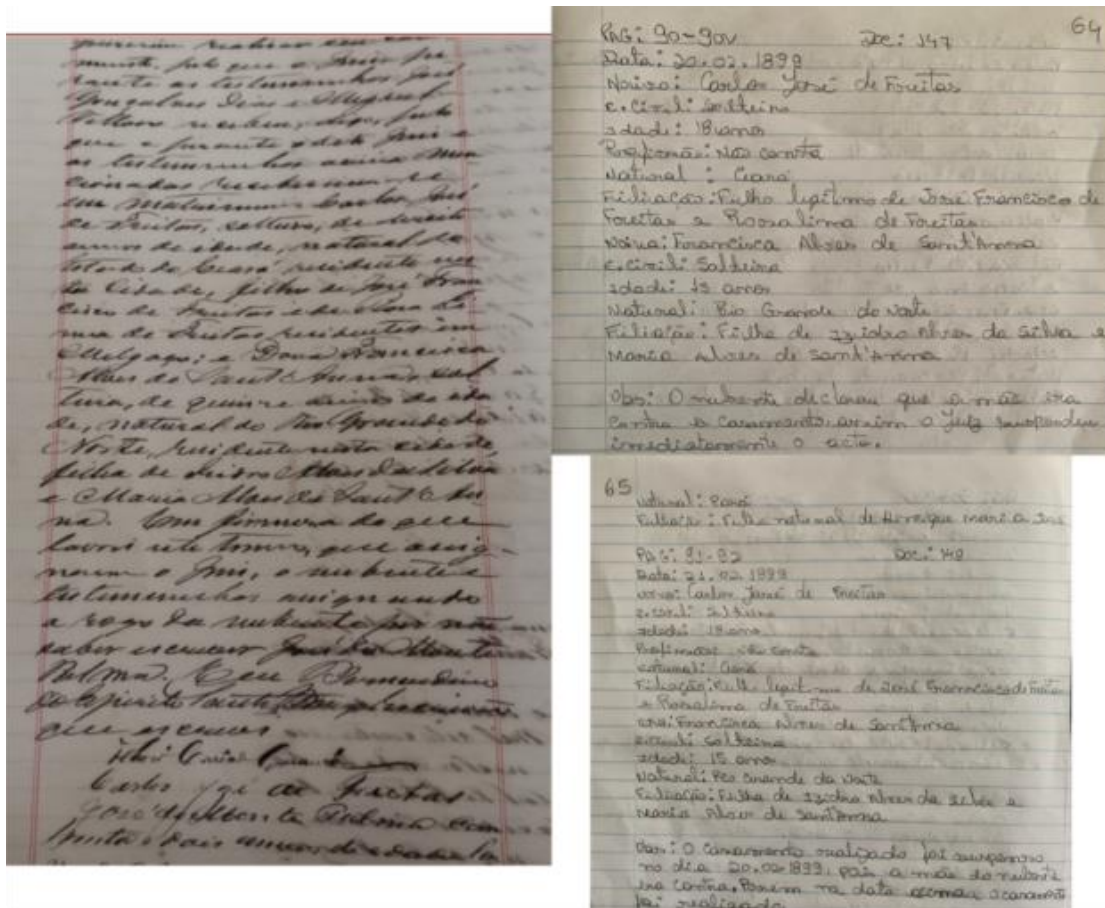 gonçalves Dias e Miguel
as testemunhas acima men
cionadas receberam-se
em matrimonio Carlos José
de Freitas, solteiro, de dezoito
annos de edade, natural do
Estado do Ceará residente nes
ta Cidade, filho de José Fran
cisco de Freitas e de Rosa Li
ma de Freitas residentes em
Melgaço; e Dona Francisca
Alves de Sant'Anna, sol
teira, de quinze annos de eda
de, natural do Rio Grande do
Norte, residente nesta cidade,
filha de Isidro Alves da Silva
e Maria Alves de Sant'An
na. Em firmeza do que
lavrei este termo, que assig
naram o Juiz, o nubente e
testemunhas assignando
a rogo da nubente por não
saber escrever José do Monte
Palma. Eu
do Espirito Santo
que escrevi
Carlos José de Freitas
José do Monte Palma
trinta e dois annos de edade
64
PAG: 90-90v Doc: 147
Data: 20.02.1899
Noivo: Carlos José de Freitas
e.civil: Solteiro
idade: 18 anos
Profissão: Não consta
Natural: Ceará
Filiação: Filho legítimo de José Francisco de
Freitas e Rosalima de Freitas
Noiva: Francisca Alves de Sant'Anna
e.civil: Solteira
idade: 15 anos
Natural: Rio Grande do Norte
Filiação: Filha de Izidro Alves da Silva e
Maria Alves de Sant'Anna
Obs: O nubente declarou que a mãe era
contra o casamento assim o Juiz suspendeu
imediatamente o acto.
65
Natural: Pará
Filiação: Filha natural de Henrique Maria
PAG: 91-92 Doc: 149
Data: 21.02.1899
Noivo: Carlos José de Freitas
e.civil: Solteiro
idade: 18 anos
Profissão: Não consta
Natural: Ceará
Filiação: Filho legitimo de José Francisco de Freitas
e Rosalima de Freitas
Noiva: Francisca Alves de Sant'Anna
e.civil: Solteira
idade: 15 anos
Natural: Rio Grande do Norte
Filiação: Filha de Izidro Alves da Silva e
Maria Alves de Sant'Anna
Obs: O casamento realizado foi suspenso
no dia 20.02.1899, pois a mãe do nubente
era contra. Porém na data acima o casamento
foi realizado